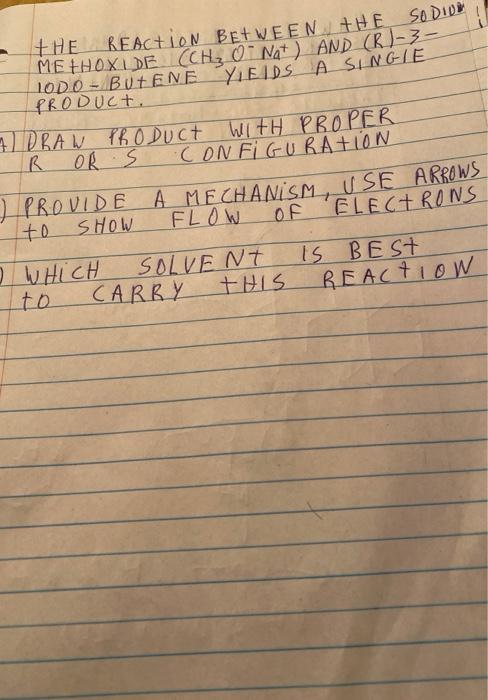 THE REACTION BETWEEN THE SODIUM
METHOXIDE (CH3 O⁻ Na⁺) AND (R)-3-
IODO - BUTENE YIELDS A SINGLE
PRODUCT.
A) DRAW PRODUCT WITH PROPER
R OR S CONFIGURATION
) PROVIDE A MECHANISM, USE ARROWS
TO SHOW FLOW OF ELECTRONS
) WHICH SOLVENT IS BEST
TO CARRY THIS REACTION